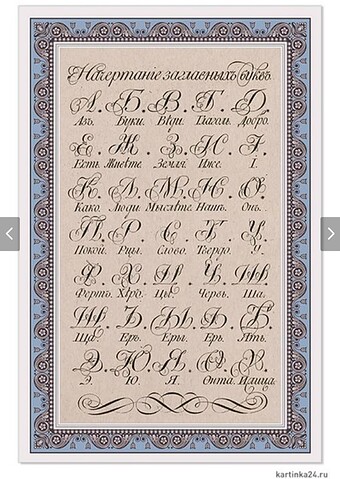 Начертаніе заглавныхъ буквъ
А. Б. В. Г. Д.
Азъ. Буки. Вѣди. Глаголь. Добро.
Е. Ж. З. И. І.
Есть. Живѣте. Земля. Иже. І.
К. Л. М. Н. О.
Како. Люди. Мыслѣте. Нашъ. Онъ.
П. Р. С. Т. У.
Покой. Рцы. Слово. Твердо. У.
Ф. Х. Ц. Ч. Ш.
Фертъ. Хѣръ. Цы. Червь. Ша.
Щ. Ъ. Ы. Ь. Ѣ.
Ща. Еръ. Еры. Ерь. Ять.
Э. Ю. Я. Ѳ. Ѵ.
Э. Ю. Я. Ѳита. Ижица.
kartinka24.ru